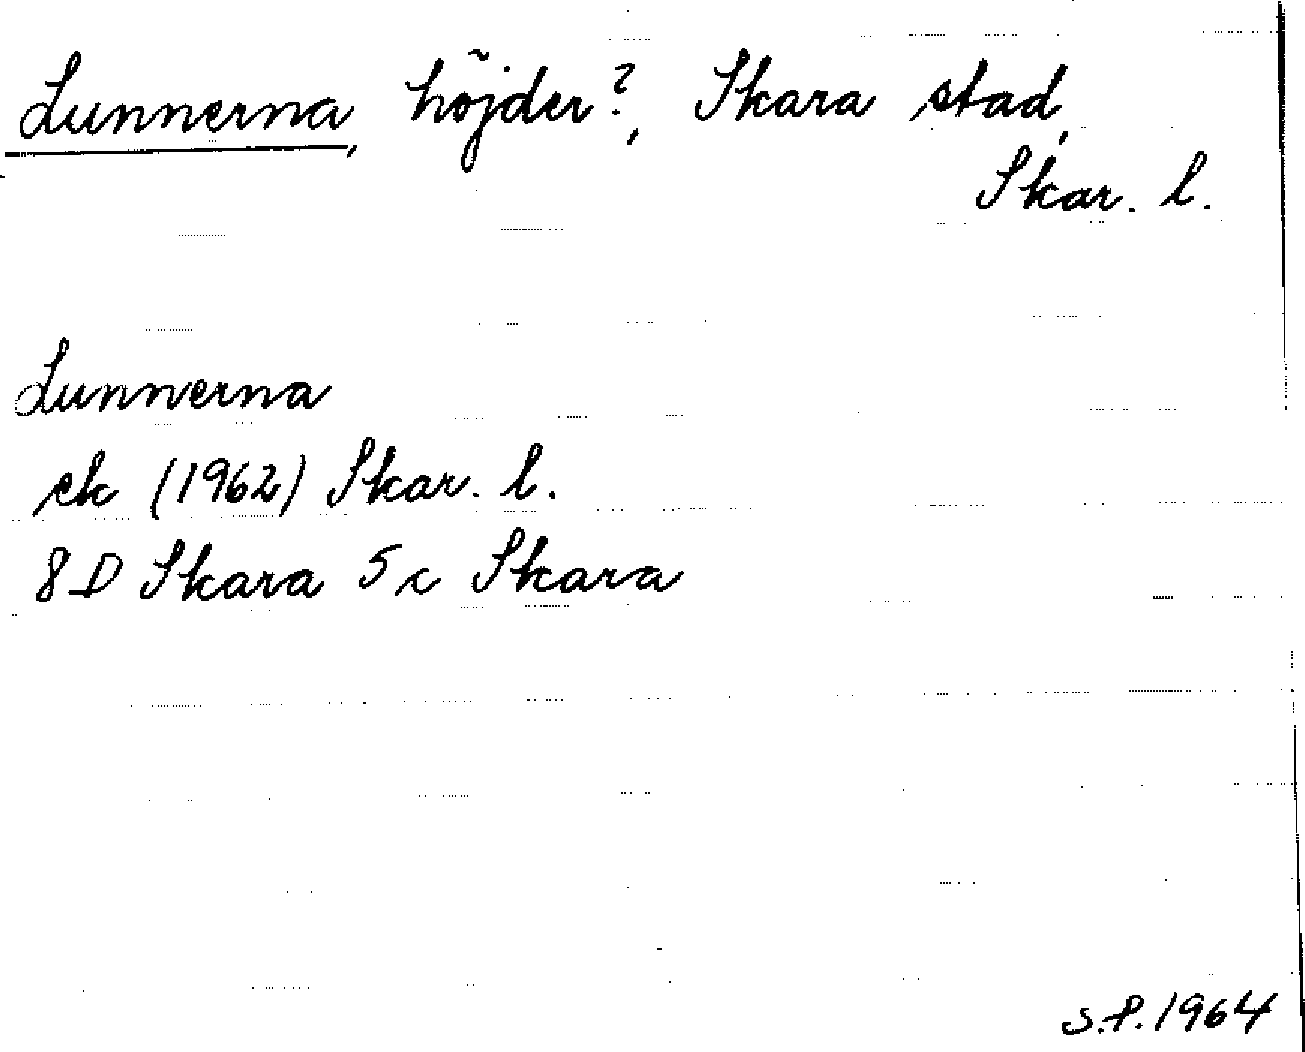 Lunnerna, höjder?, Skara stad,
Skar. l.
Lunnerna
ek (1962) Skar. l.
8D Skara 5c Skara
S.P. 1964